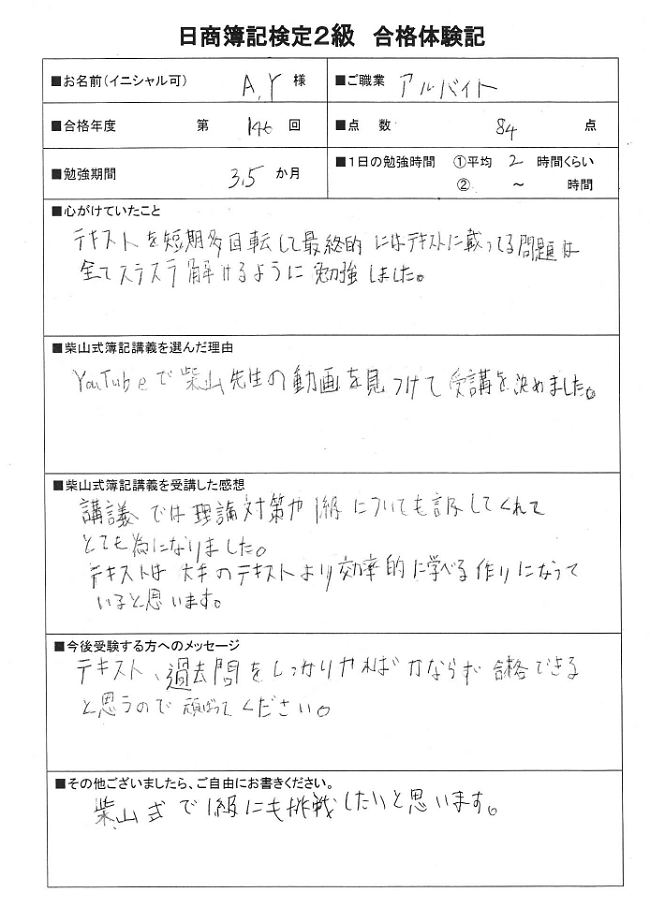 日商簿記検定2級 合格体験記
■お名前(イニシャル可) A.Y 様 ■ご職業 アルバイト
■合格年度 第 146 回 ■点 数 84 点
■勉強期間 3.5 か月 ■1日の勉強時間 ①平均 2 時間くらい
② ～ 時間
■心がけていたこと
テキストを短期多回転して最終的にはテキストに載ってる問題は
全てスラスラ解けるように勉強しました。
■柴山式簿記講義を選んだ理由
YouTubeで柴山先生の動画を見つけて受講を決めました。
■柴山式簿記講義を受講した感想
講議では理論対策や1級についても話してくれて
とても為になりました。
テキストは大手のテキストより効率的に学べる作りになって
いると思います。
■今後受験する方へのメッセージ
テキスト、過去問をしっかりやればかならず合格できる
と思うので頑ばってください。
■その他ございましたら、ご自由にお書きください。
柴山式で1級にも挑戦したいと思います。